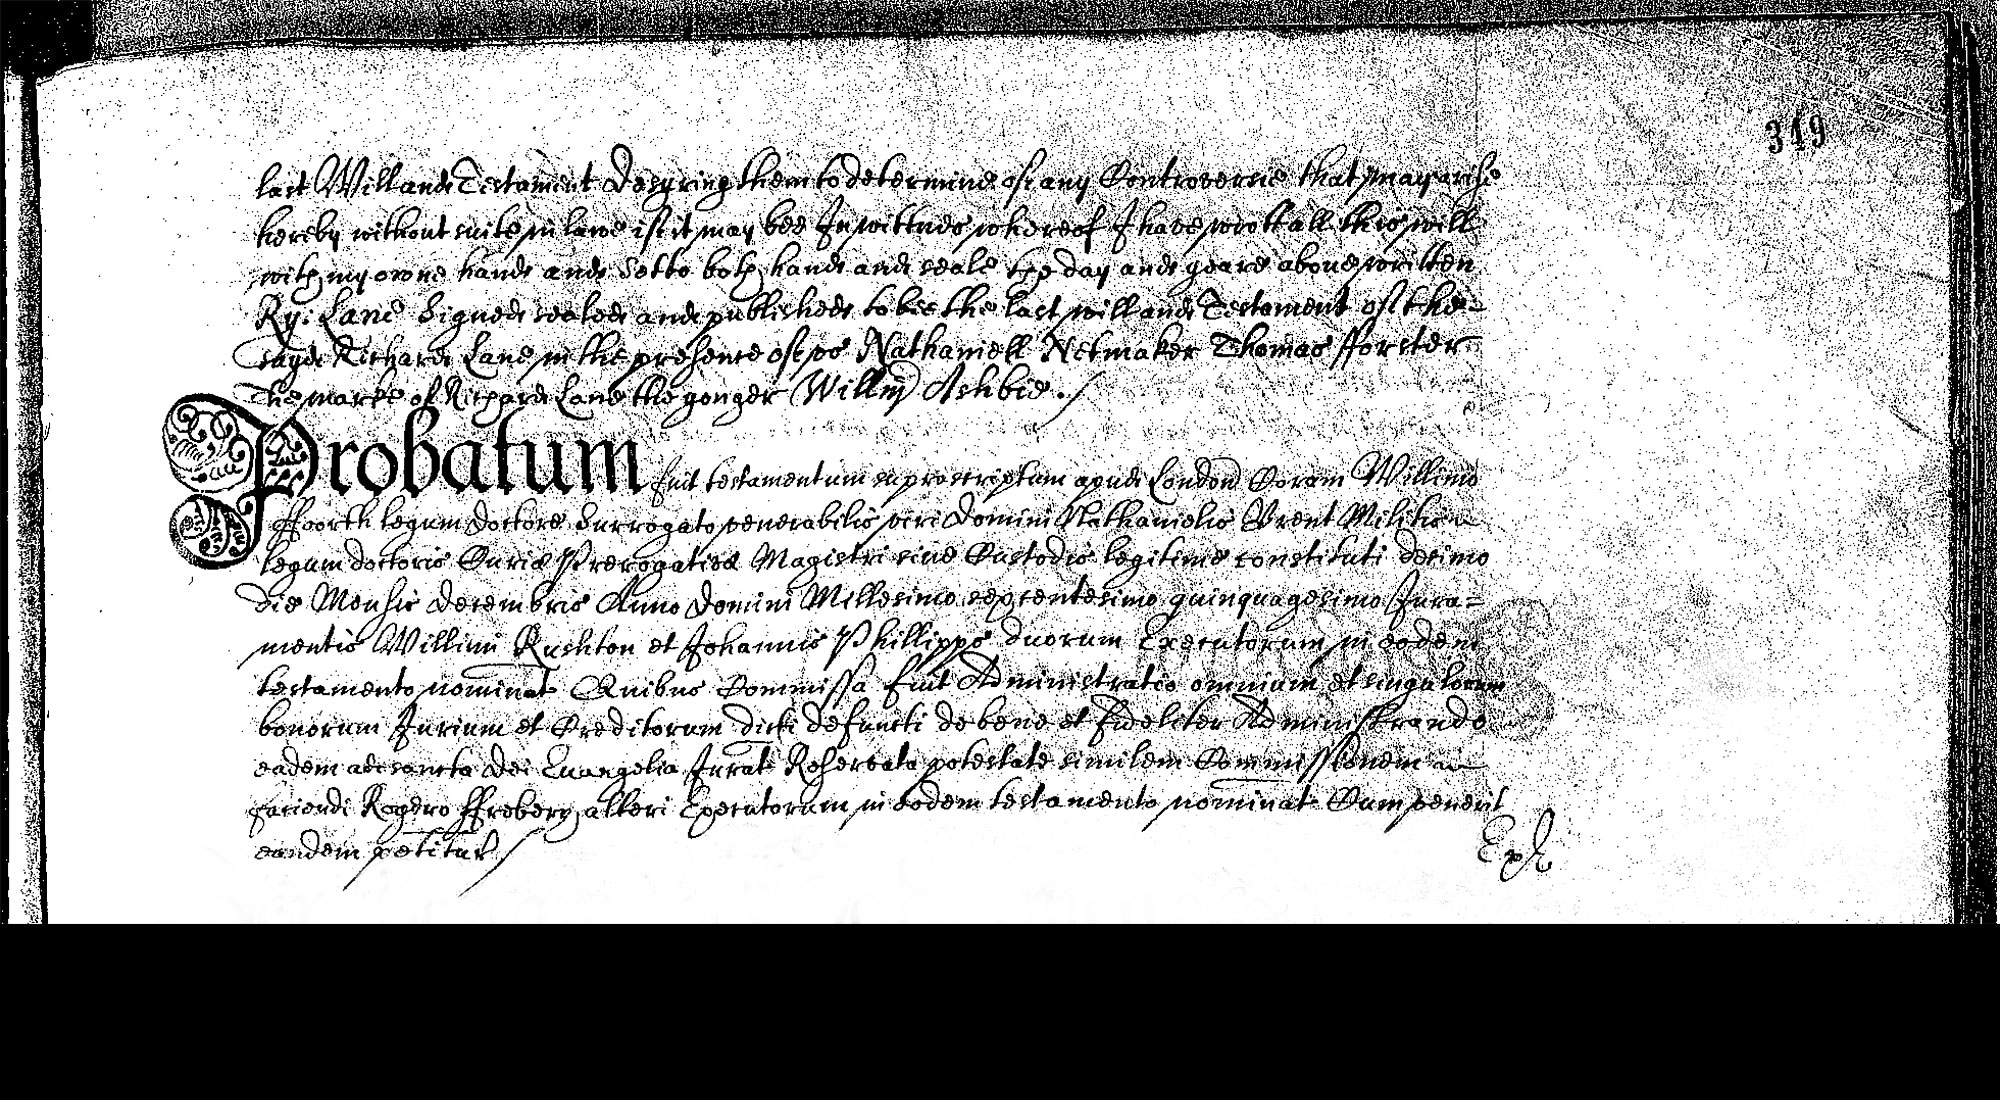 349
last Will and Testament Desyring them to determine of any Controversie that may arise
hereby without suite in lawe if it may bee In wittnes whereof I have wrott all this will
with my owne hande and Sett to both hand and seale the day and yeare above written
Ry: Lane Signed sealed and published to bee the last will and Testament of the
sayd Richard Lane in the presence of us Nathaniell Netmaker Thomas fforster
The marke of Richard Lane the yonger Willm Ashbie
Probatum fuit testamentum suprascriptum apud London Coram Willimo
ffoorth legum doctore Surrogato venerabilis viri Domini Nathanielis Brent Militis
legum doctoris Curiæ Prerogativæ Magistri sive Custodis legitime constituti decimo
die Mensis Decembris Anno Domini Millesimo sexcentesimo quinquagesimo Jura=
mentis Willimi Rushton et Johannis Phillipps duorum Executorum in eodem
testamento nominat Quibus Commissa fuit Administratio omnium et singulorum
bonorum Jurium et Creditorum dicti defuncti de bene et fideliter Administrando
eadem ad sancta Dei Evangelia Jurat Reservata potestate similem Commissionem
faciendi Rogero ffrebery alteri Executorum in eodem testamento nominat Cum venerit
eandem petitur